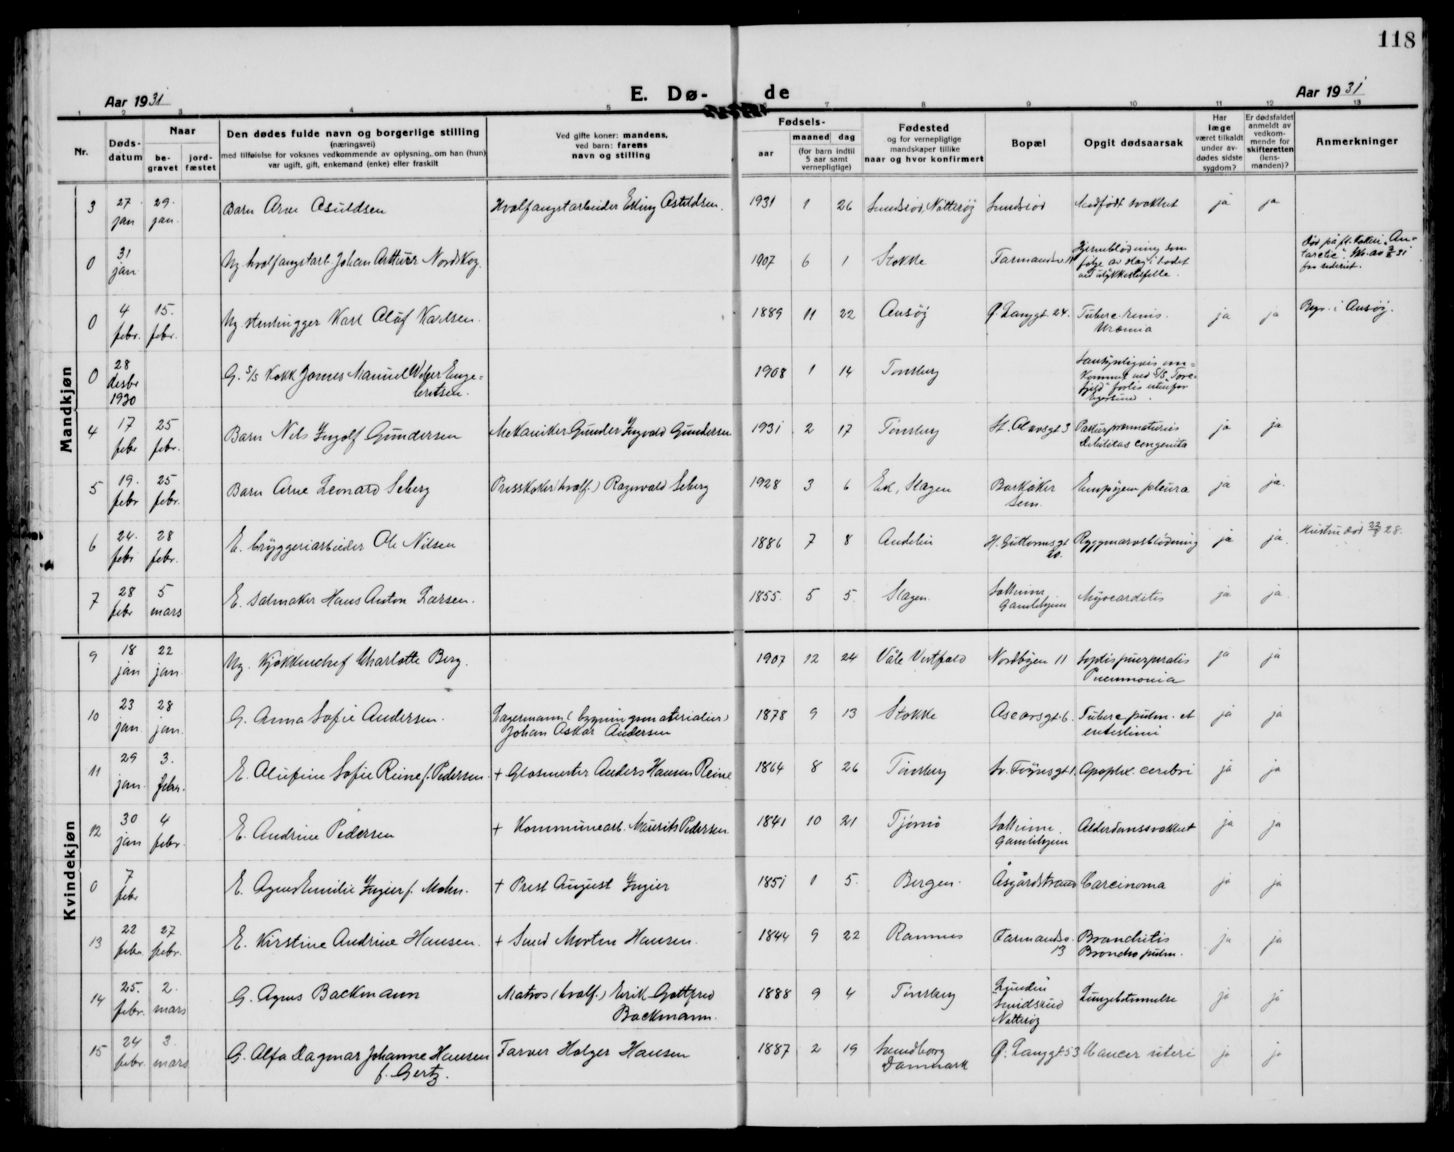 118
Aar 1931
E. Dø-
de
Aar 1931
1 2 3 4 5 7 8 9 10 11 12 13
Nr.
Døds-
datum
Naar
be-
gravet
jord-
fæstet
Den dødes fulde navn og borgerlige stilling
(næringsvei)
med tilføielse for voksnes vedkommende av oplysning, om han (hun)
var ugift, gift, enkemand (enke) eller fraskilt
Ved gifte koner: mandens,
ved barn: farens
navn og stilling
Fødsels-
aar
maaned
dag
(for barn indtil
5 aar samt
vernepligtige)
Fødested
og for vernepligtige
mandskaper tillike
naar og hvor konfirmert
Bopæl
Opgit dødsaarsak
Har
læge
været tilkaldt
under av-
dødes sidste
sygdom?
Er dødsfaldet
anmeldt av
vedkom-
mende for
skifteretten
(lens-
manden)?
Anmerkninger
Mandkjøn
3 27 jan 29 jan. Barn Arne Asuldsen Hvalfangstarbeider Elling 1931 1 26 Smidsrød, Nøtterøy Smidsrød Medfødt svakhet ja ja
0 31 jan Ug. hvalfangstarb. Johan Arthur Nordskog. 1907 6 1 Stokke Farmandsv. Hjerneblødning som
følge av slag i hodet
ved ulykkestilfelle.
Død på fl. kokeri "An-
tarctic".
fra rederiet.
0 4 febr. 15. febr. Ug. stenhugger Karl Olaf Karlsen. 1889 11 22 Ø. Langgt 24. Tuberc. renis.
Uræmia ja ja Begr. i
0 28 desbr 1930 G. s/s Kokk James Manuel Enge-
bretsen. 1908 1 14 Tønsberg Sansynligvis om-
kommet ved
forlis utenfor
4 17 febr 25 febr. Barn Nils Ingolf Gundersen Mekaniker Gunder Ingvald Gundersen 1931 2 17 Tønsberg St. Olavsgt 3 Partus præmaturus
debilitas congenita ja ja
5 19. febr 25 febr. Barn Arne Leonard Seberg Presskoker (hvalf.) Ragnvald Seberg 1928 3 6 Eik, Slagen Barkåker
Sem. Empyem pleura ja ja.
6 24. febr 28 febr. E. bryggeriarbeider Ole Nilsen 1886 7 8 Andebu H. Guttormsgt
20. Ryggmarvsblødning ja ja. Hustru død 28.
7 28 febr 5 mars E. salmaker Hans Anton Larsen. 1855. 5 5. Slagen.
Gamlehjem Myocarditis ja ja.
Kvindekjøn
9 18 jan 22 jan. Ug. Kjøkkenchef Charlotte Berg. 1907 12 24 Våle Vestfold Nordbyen 11 Sepsis puerperalis
Pneumonia ja ja
10 23 jan. 28 jan. G. Anna Sofie Andersen. Lagermann (bygningsmaterialier)
Johan Oskar Andersen 1878 9 13 Stokke 6. Tuberc. pulm. et
intestini ja ja
11 29 jan. 3. febr. E. Olufine Sofie Reine f. Pedersen + Glasmester Anders Hansen Reine 1864 8 26 Tønsberg Sv. Føynsgt 1. Apoplex. cerebri ja ja
12 30 jan 4 febr. E. Andrine Pedersen + Kommunearb. Maurits Pedersen 1841 10 21 Tjømø
Gamlehjem Alderdomssvakhet ja ja
0 7 febr E. Agnes Emilie Ingier f. Mohn. + Prest August Ingier 1851 1 5. Bergen. Åsgårdstrand Carcinoma ja ja
13 22 febr 27 febr. E. Kirstine Andrine Hansen. + Smed Morten Hansen. 1844 9 22 Ramnes Farmandsv.
13 Bronchitis
Broncho pulm. ja ja
14 25. febr. 2. mars G. Agnes Backmann Matros (hvalf.) Erik Gottfred
Backmann. 1888 9 4 Tønsberg
Smidsrød
Nøtterøy Lungebetennelse ja ja
15 24 febr. 3. mars G. Alfa Dagmar Johanne Hansen
f. Gertz. Farver Holger Hansen 1887 2 19 Svendborg
Danmark Ø. Langgt 53 Cancer uteri ja ja